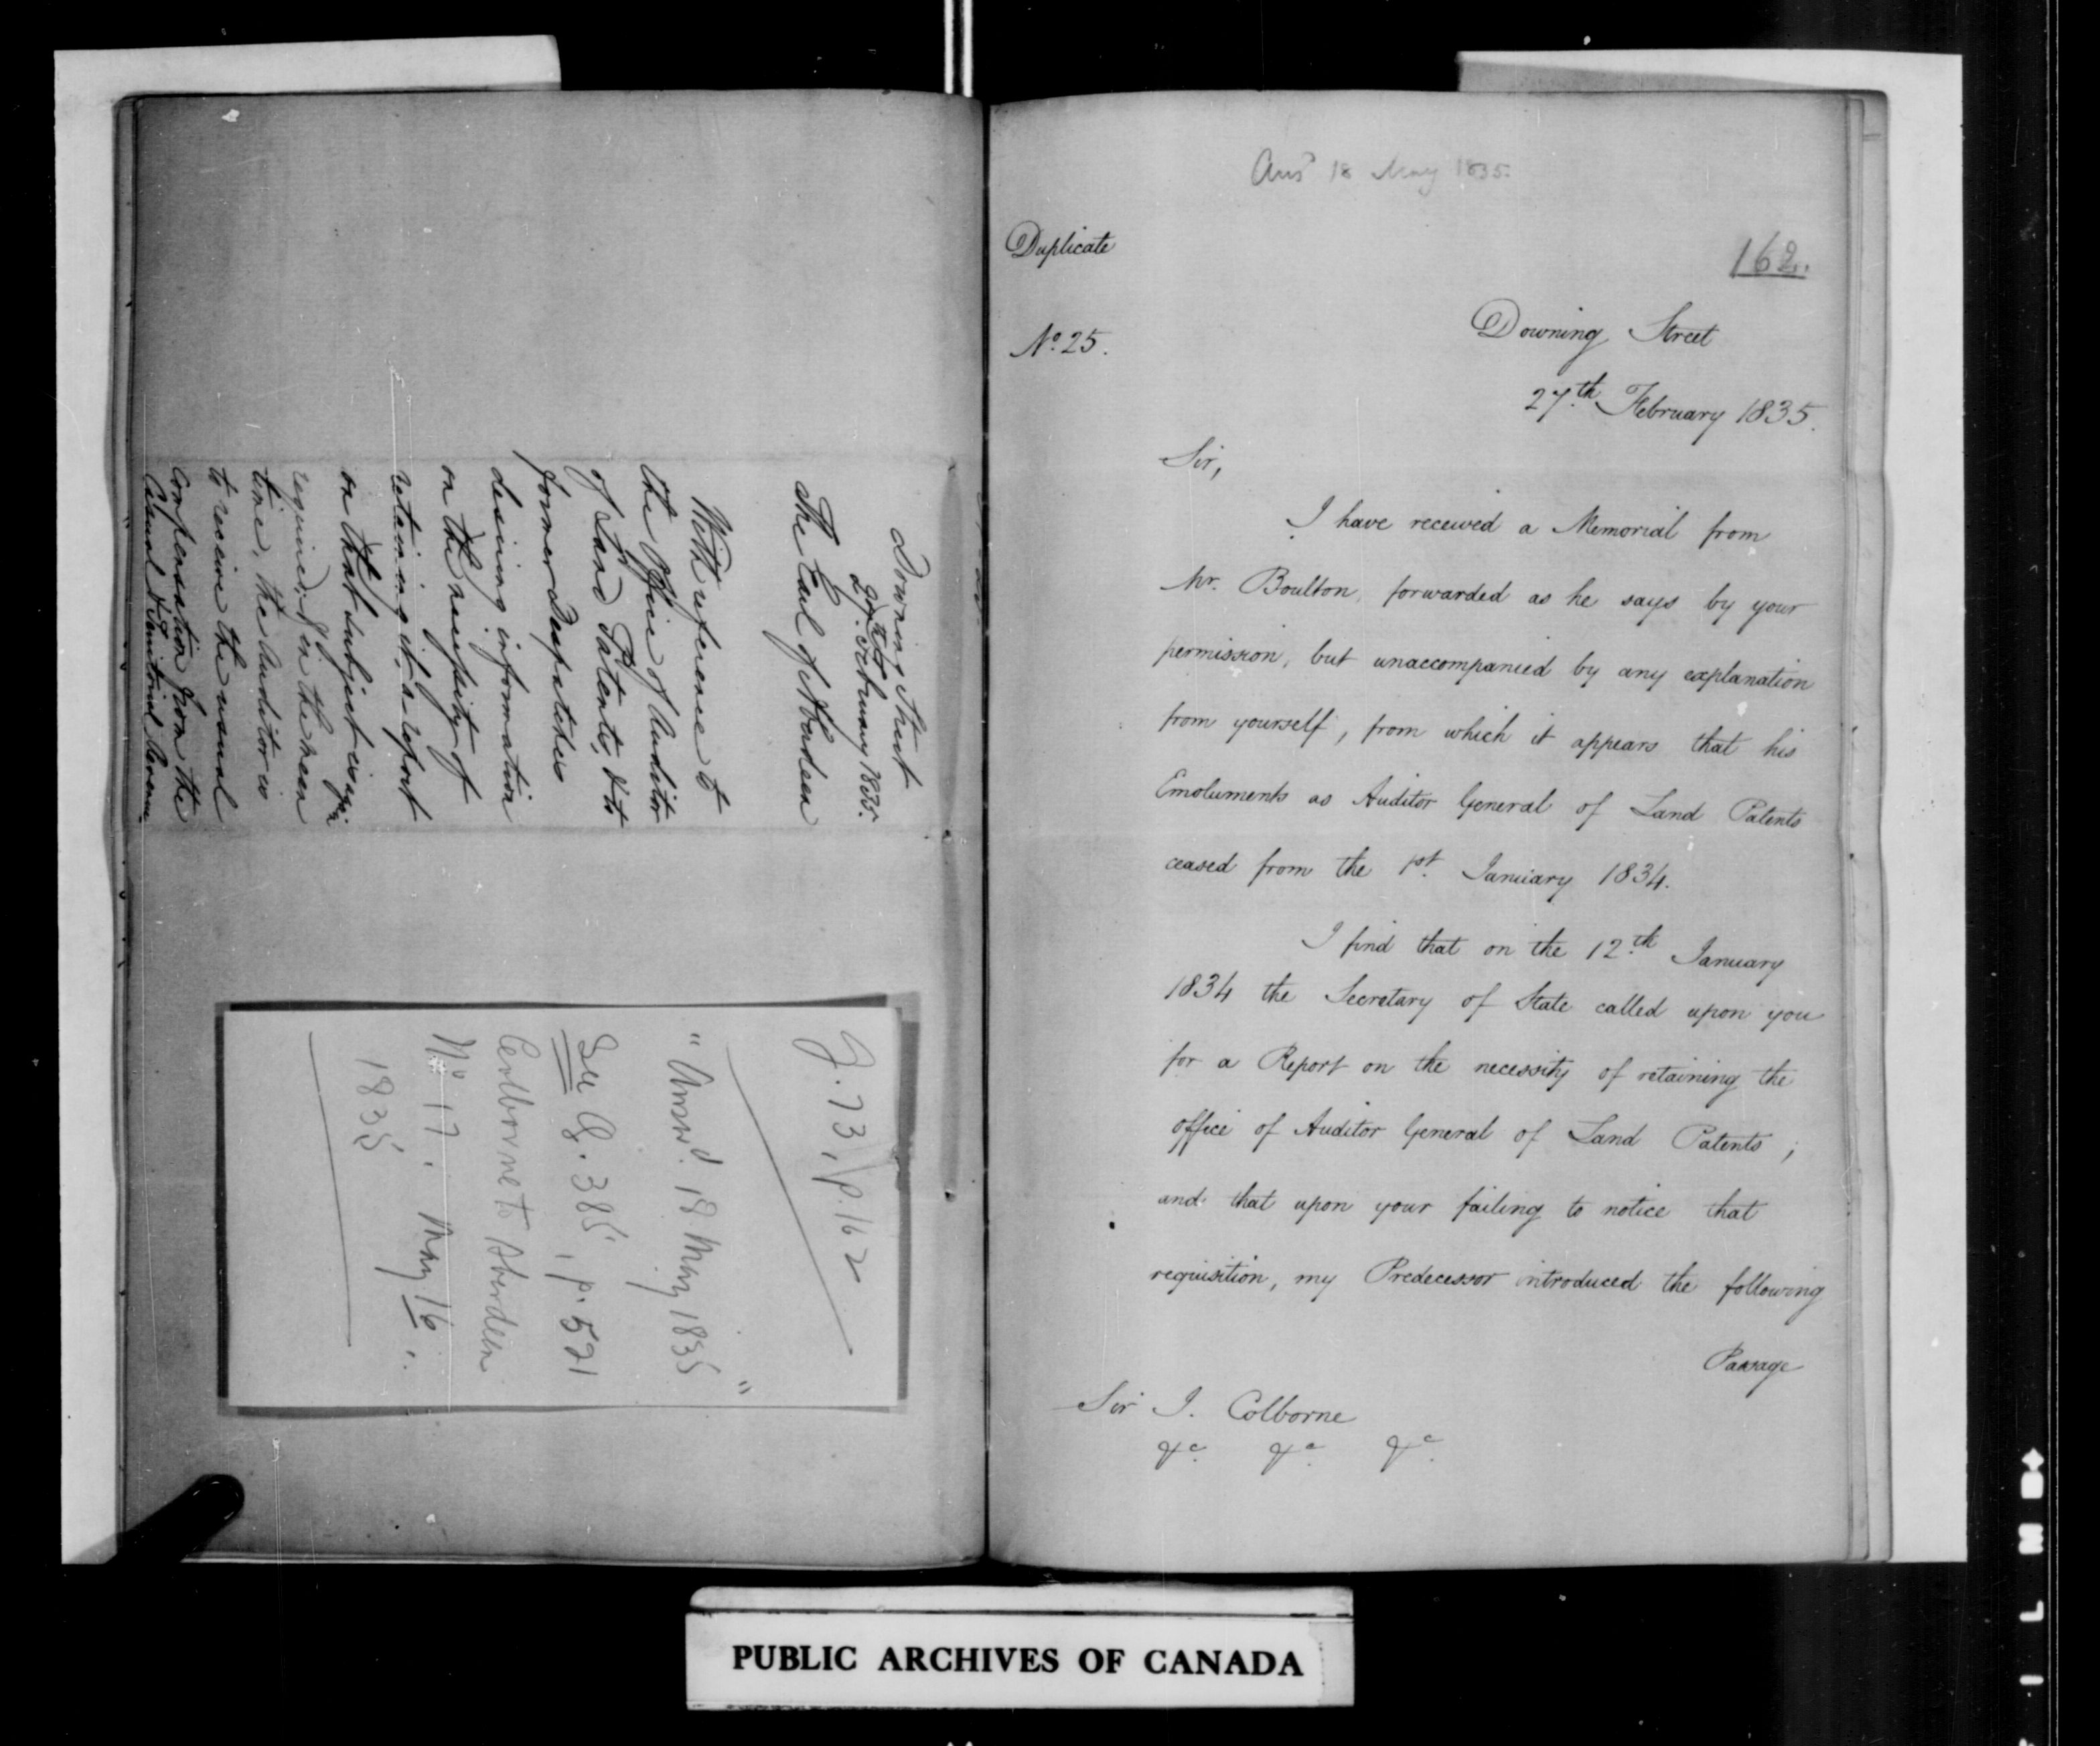 Downing Street
27th February 1835.
The Earl of Aberdeen
With reference to
the Office of Auditor
of Land Patents, & to
former Despatches
desiring information
on the necessity of
retaining it, a report
on that subject is again
required, & in the mean
time, the Auditor is
to receive the usual
compensation from the
Casual & Territorial Revenue
G. 73, p. 162
"Answd. 18 May 1835"
See G. 385, p. 521
Colborne to Aberdeen
No 17. May 16.
1835
Ansd 18 May 1835.
Duplicate
162.
No. 25.
Downing Street
27th. February 1835.
Sir,
I have received a Memorial from
Mr. Boulton, forwarded as he says by your
permission, but unaccompanied by any explanation
from yourself, from which it appears that his
Emoluments as Auditor General of Land Patents
ceased from the 1st. January 1834.
I find that on the 12th. January
1834 the Secretary of State called upon you
for a Report on the necessity of retaining the
office of Auditor General of Land Patents;
and that upon your failing to notice that
requisition, my Predecessor introduced the following
Passage
Sir J. Colborne
&c. &c. &c.
PUBLIC ARCHIVES OF CANADA